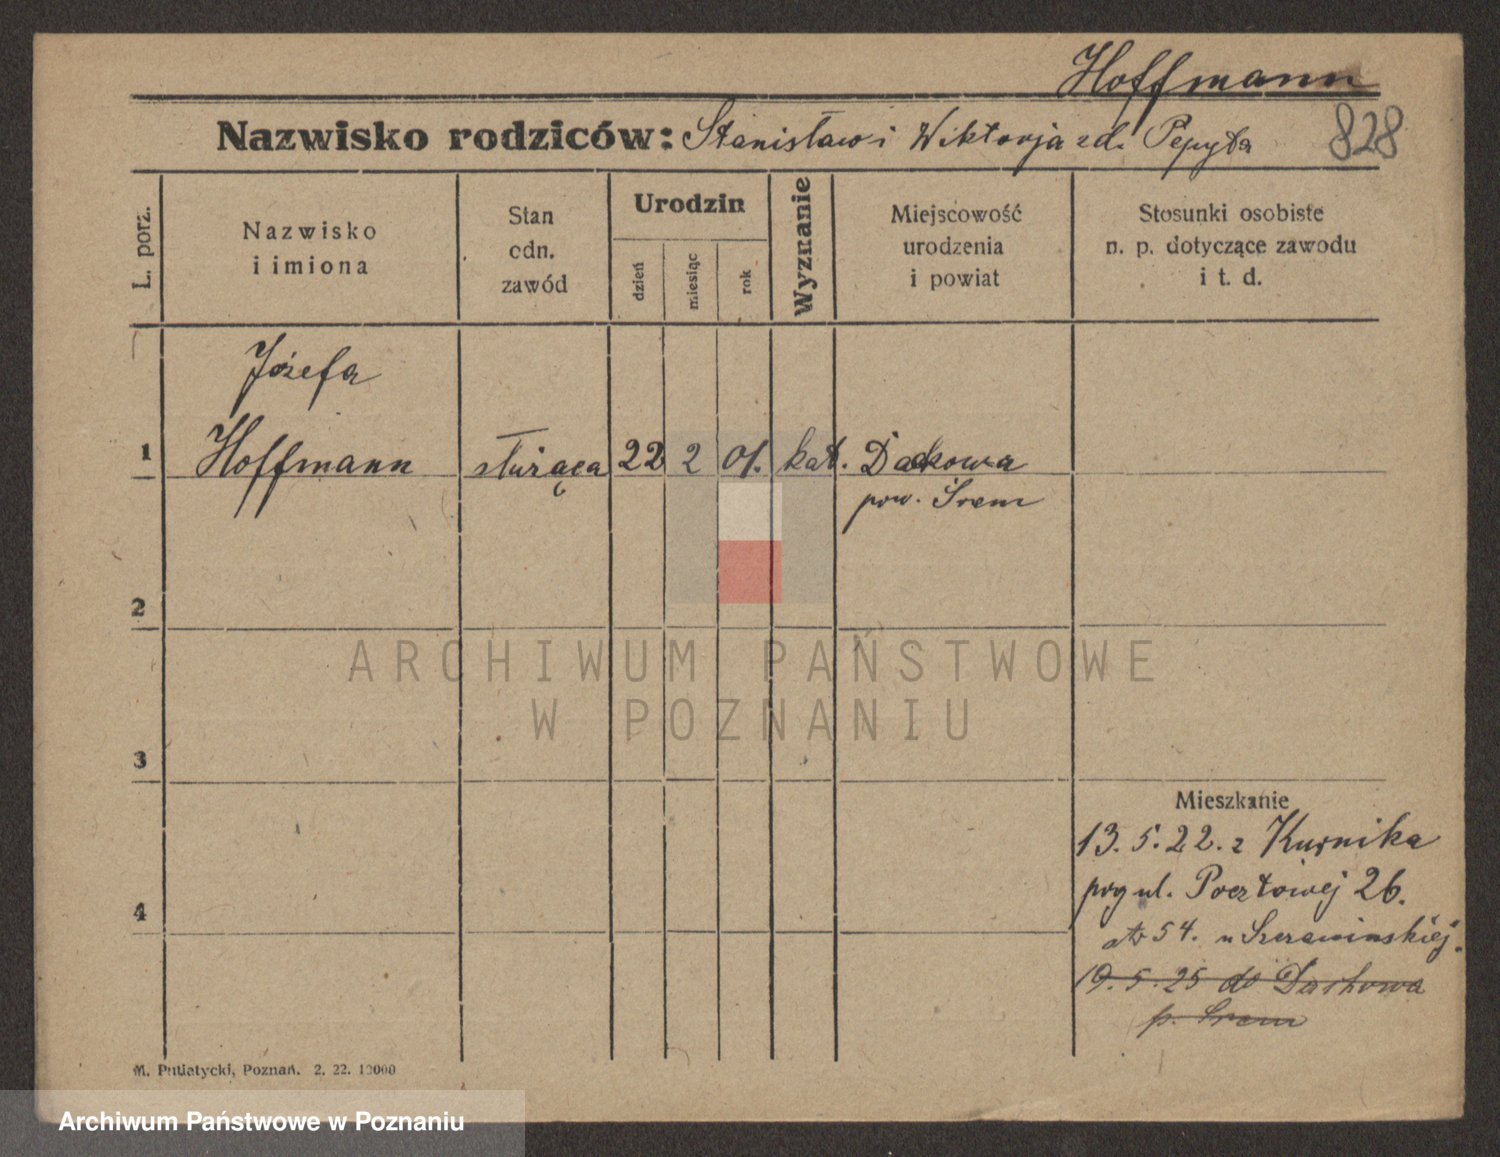 Hoffmann
Nazwisko rodziców: Stanisław i Wiktorja zd. Pepyta 828
L. porz.
Nazwisko
i imiona
Stan
odn.
zawód
Urodzin
dzień
miesiąc
rok
Wyznanie
Miejscowość
urodzenia
i powiat
Stosunki osobiste
n. p. dotyczące zawodu
i t. d.
Józefa
1 Hoffmann służąca 22 2 01. kat. Dachowa
pow. Śrem
2
3
4
Mieszkanie
13. 5. 22. z Kurnika
przy ul. Pocztowej 26.
54. u
19. 5. 25 do Dachowa
p. Śrem
M. Putiatycki, Poznań. 2. 22. 10000
ARCHIWUM PAŃSTWOWE
W POZNANIU
Archiwum Państwowe w Poznaniu